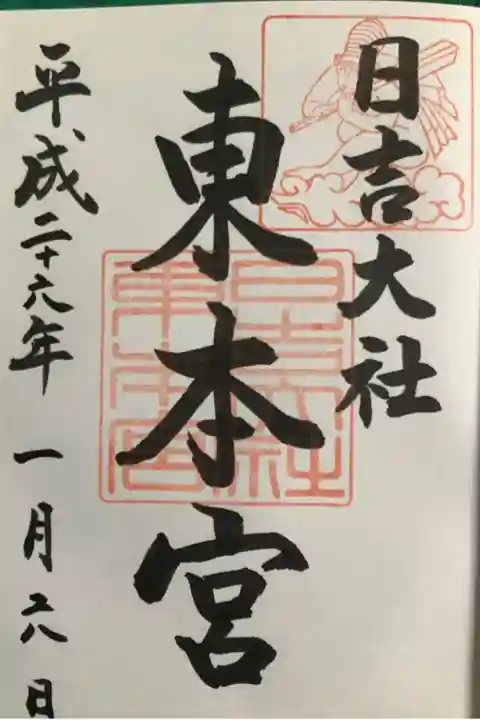 日吉大社
東本宮
平成二十六年 一月二八日
日吉大社
東本宮